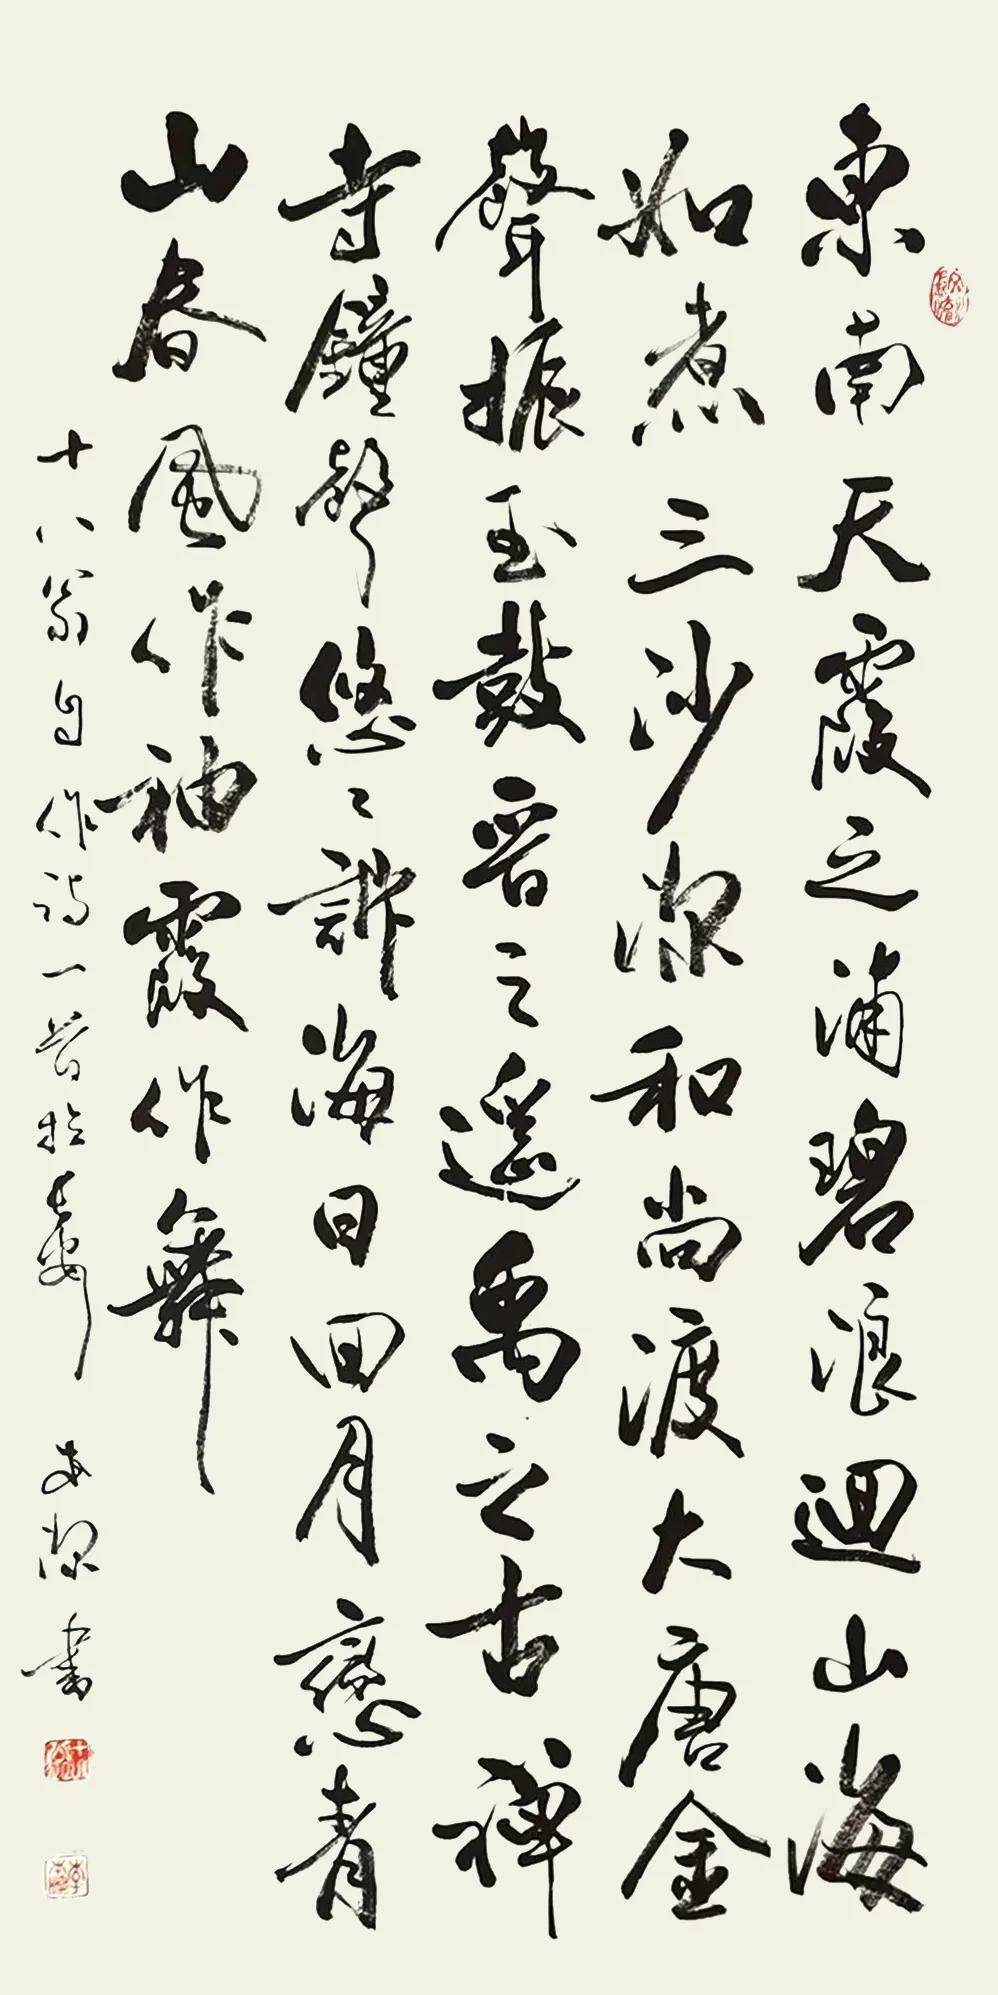 東南天霞之浦碧浪迴山海
如煮三沙深和尚渡大唐金
聲振玉鼓晋之遥禹之古禅
寺鐘聲悠々訴海日回月戀青
山春風作袖霞作舞
十八翁自作诗一首於 深書